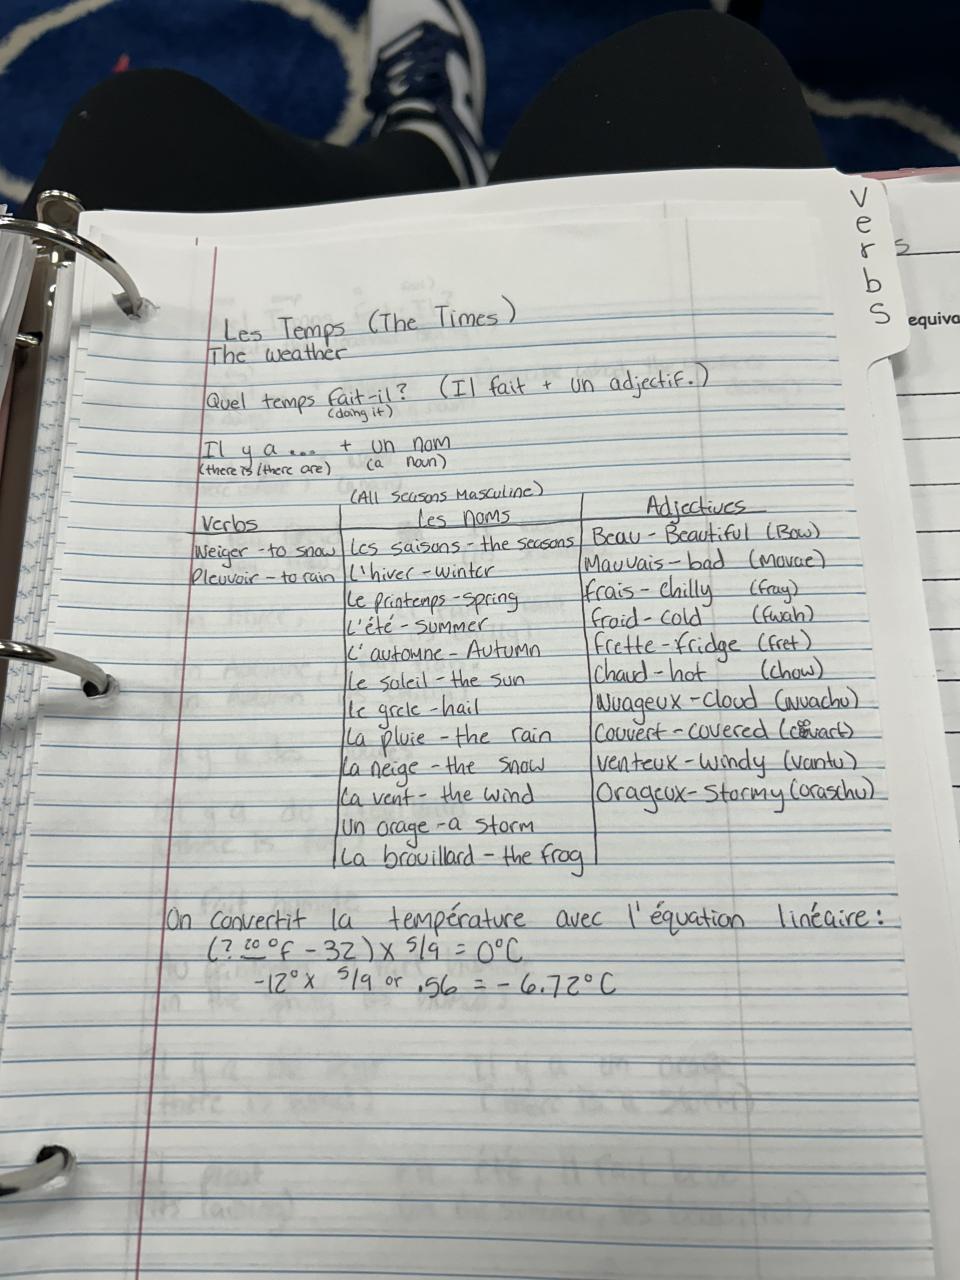 Verbs
s
equiva
Les Temps (The Times)
The weather
Quel temps fait-il? (Il fait + un adjectif.)
(doing it)
Il y a ... + un nom
(there is/there are) (a noun)
(All seasons Masculine)
Verbs
Neiger - to snow
Pleuvoir - to rain
Les noms
Les saisons - the seasons
L'hiver - winter
Le printemps - spring
L'été - summer
L'automne - Autumn
Le soleil - the sun
Le grele - hail
La pluie - the rain
La neige - the snow
La vent - the wind
Un orage - a storm
La brouillard - the frog
Adjectives
Beau - Beautiful (Bow)
Mauvais - bad (Movae)
frais - chilly (fray)
froid - cold (fwah)
frette - fridge (fret)
Chaud - hot (chow)
Nuageux - cloud (nuachu)
Couvert - covered
Venteux - windy (vantu)
Orageux - Stormy (oraschu)
On convertit la température avec l'équation linéaire:
(? 20 °F - 32) x 5/9 = 0°C
-12° x 5/9 or .56 = - 6.72°C